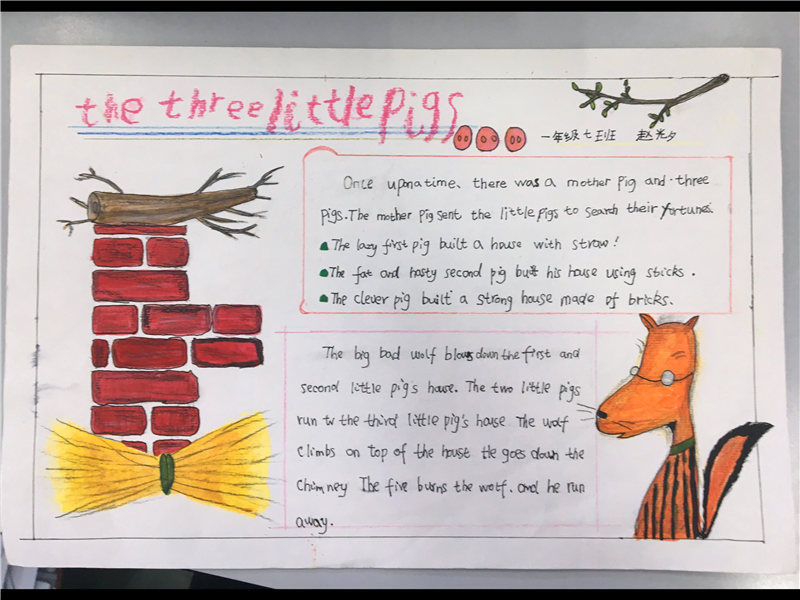 the three little pigs
一年级七班 赵光夕
Once upon a time、there was a mother pig and three
pigs. The mother pig sent the little pigs to search their fortunes.
The lazy first pig built a house with straw!
The fat and nasty second pig built his house using sticks.
The clever pig built a strong house made of bricks.
The big bad wolf blows down the first and
second little pig's house. The two little pigs
run to the third little pig's house The wolf
climbs on top of the house He goes down the
chimney The fire burns the wolf. and he run
away.